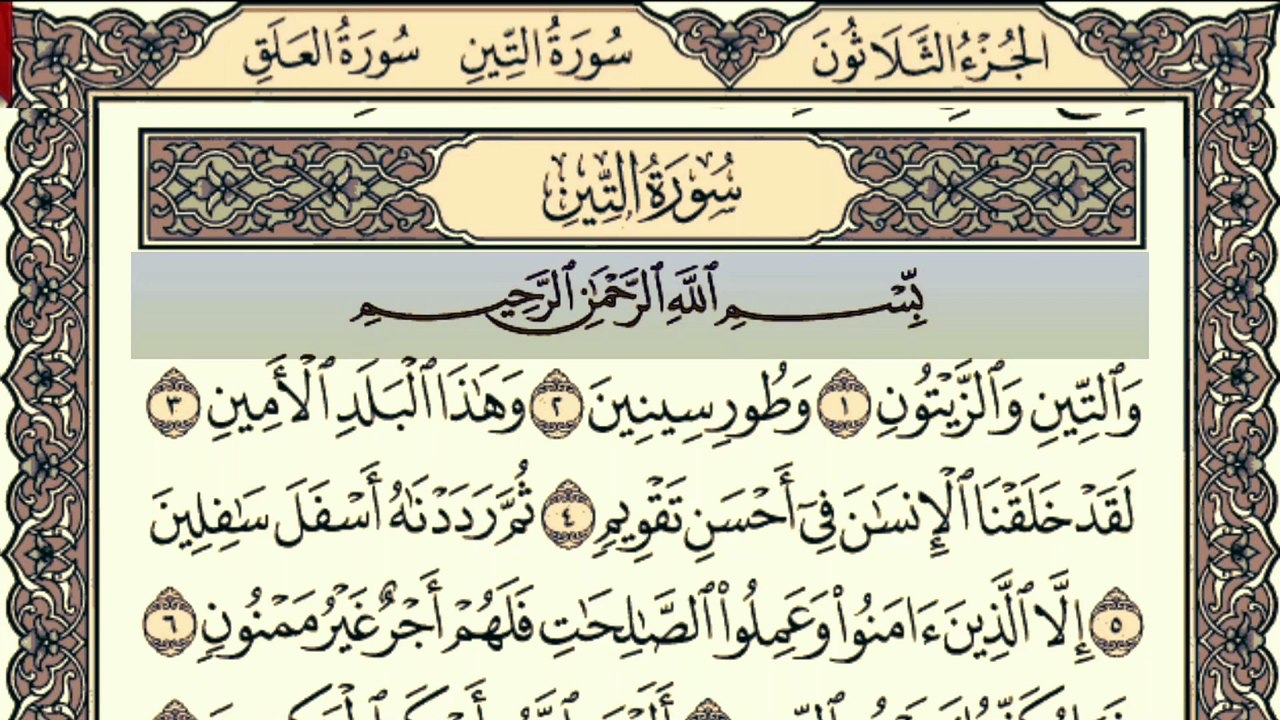 الجُزْءُ الثَّلَاثُونَ سُورَةُ التِّينِ سُورَةُ العَلَقِ
سُورَةُ التِّينِ
بِّسْمِ ٱللَّهِ ٱلرَّحْمَٰنِ ٱلرَّحِيمِ
وَٱلتِّينِ وَٱلزَّيْتُونِ ١ وَطُورِ سِينِينَ ٢ وَهَٰذَا ٱلْبَلَدِ ٱلْأَمِينِ ٣
لَقَدْ خَلَقْنَا ٱلْإِنسَٰنَ فِىٓ أَحْسَنِ تَقْوِيمٍ ٤ ثُمَّ رَدَدْنَٰهُ أَسْفَلَ سَٰفِلِينَ
٥ إِلَّا ٱلَّذِينَ ءَامَنُوا۟ وَعَمِلُوا۟ ٱلصَّٰلِحَٰتِ فَلَهُمْ أَجْرٌ غَيْرُ مَمْنُونٍ ٦